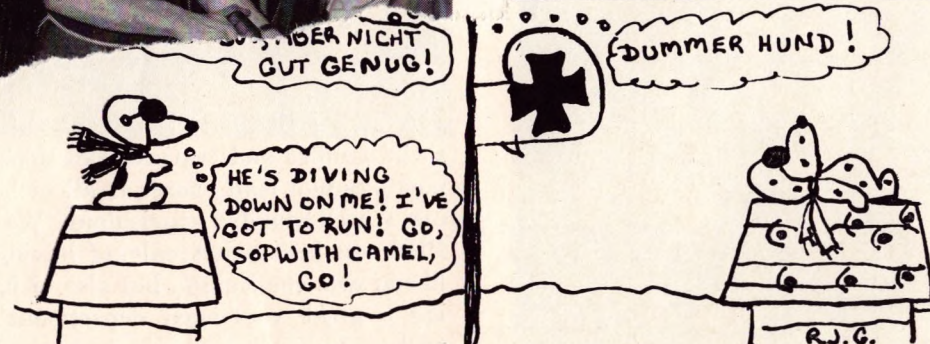 NICHT
GUT GENUG!
HE'S DIVING
DOWN ON ME! I'VE
GOT TO RUN! GO,
SOPWITH CAMEL,
GO!
DUMMER HUND!
R.J.G.